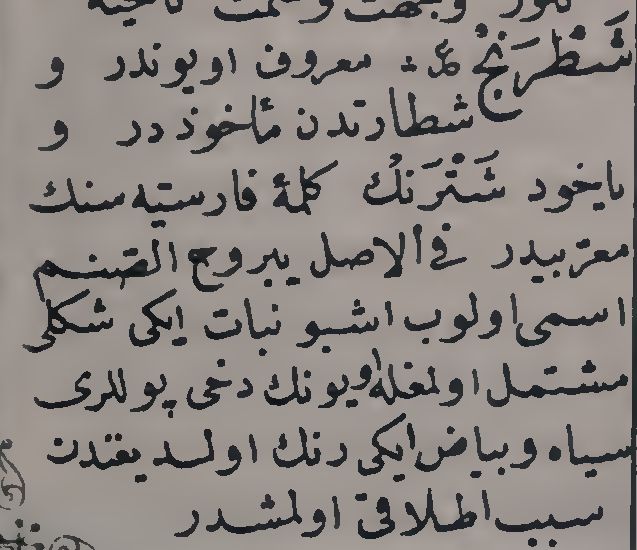 شَطْرَنْجْ ع معروف اويوندر و
شطارتدن مأخوذ در و
ياخود شَتْرَنْك كلمۀ فارسيه سنك
معرّبيدر في الاصل يبروح الصنم
اسمى اولوب اشبو نبات ايكى شكلى
مشتمل اولمغله اويونك دخى پوللرى
سياه و بياض ايكى رنك اولديغندن
سبب اطلاقى اولمشدر